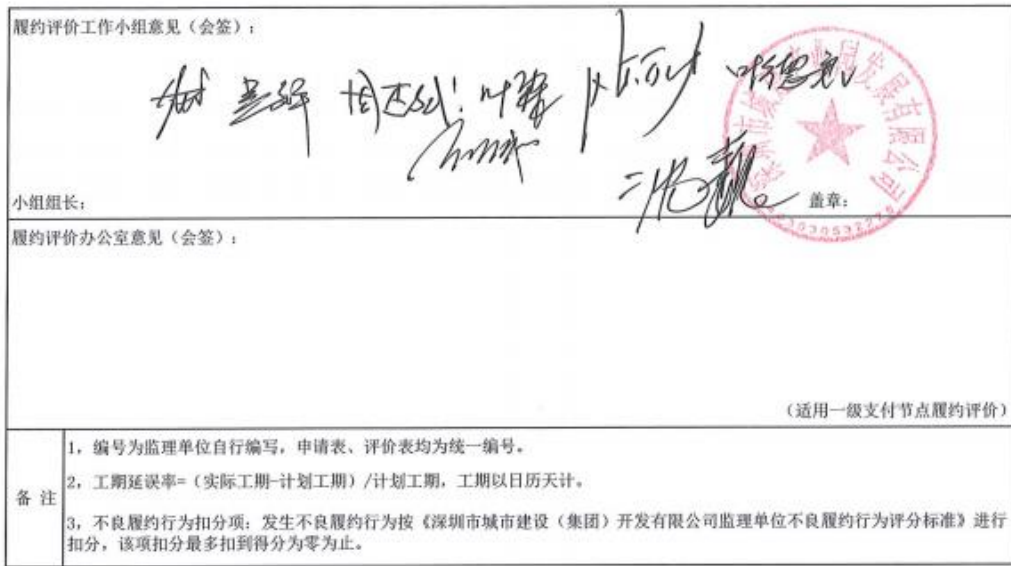 履约评价工作小组意见（会签）：
叶德
小组组长：
盖章：
发展有限公司
履约评价办公室意见（会签）：
（适用一级支付节点履约评价）
备 注
1，编号为监理单位自行编写，申请表、评价表均为统一编号。
2，工期延误率=（实际工期-计划工期）/计划工期，工期以日历天计。
3，不良履约行为扣分项：发生不良履约行为按《深圳市城市建设（集团）开发有限公司监理单位不良履约行为评分标准》进行
扣分，该项扣分最多扣到得分为零为止。